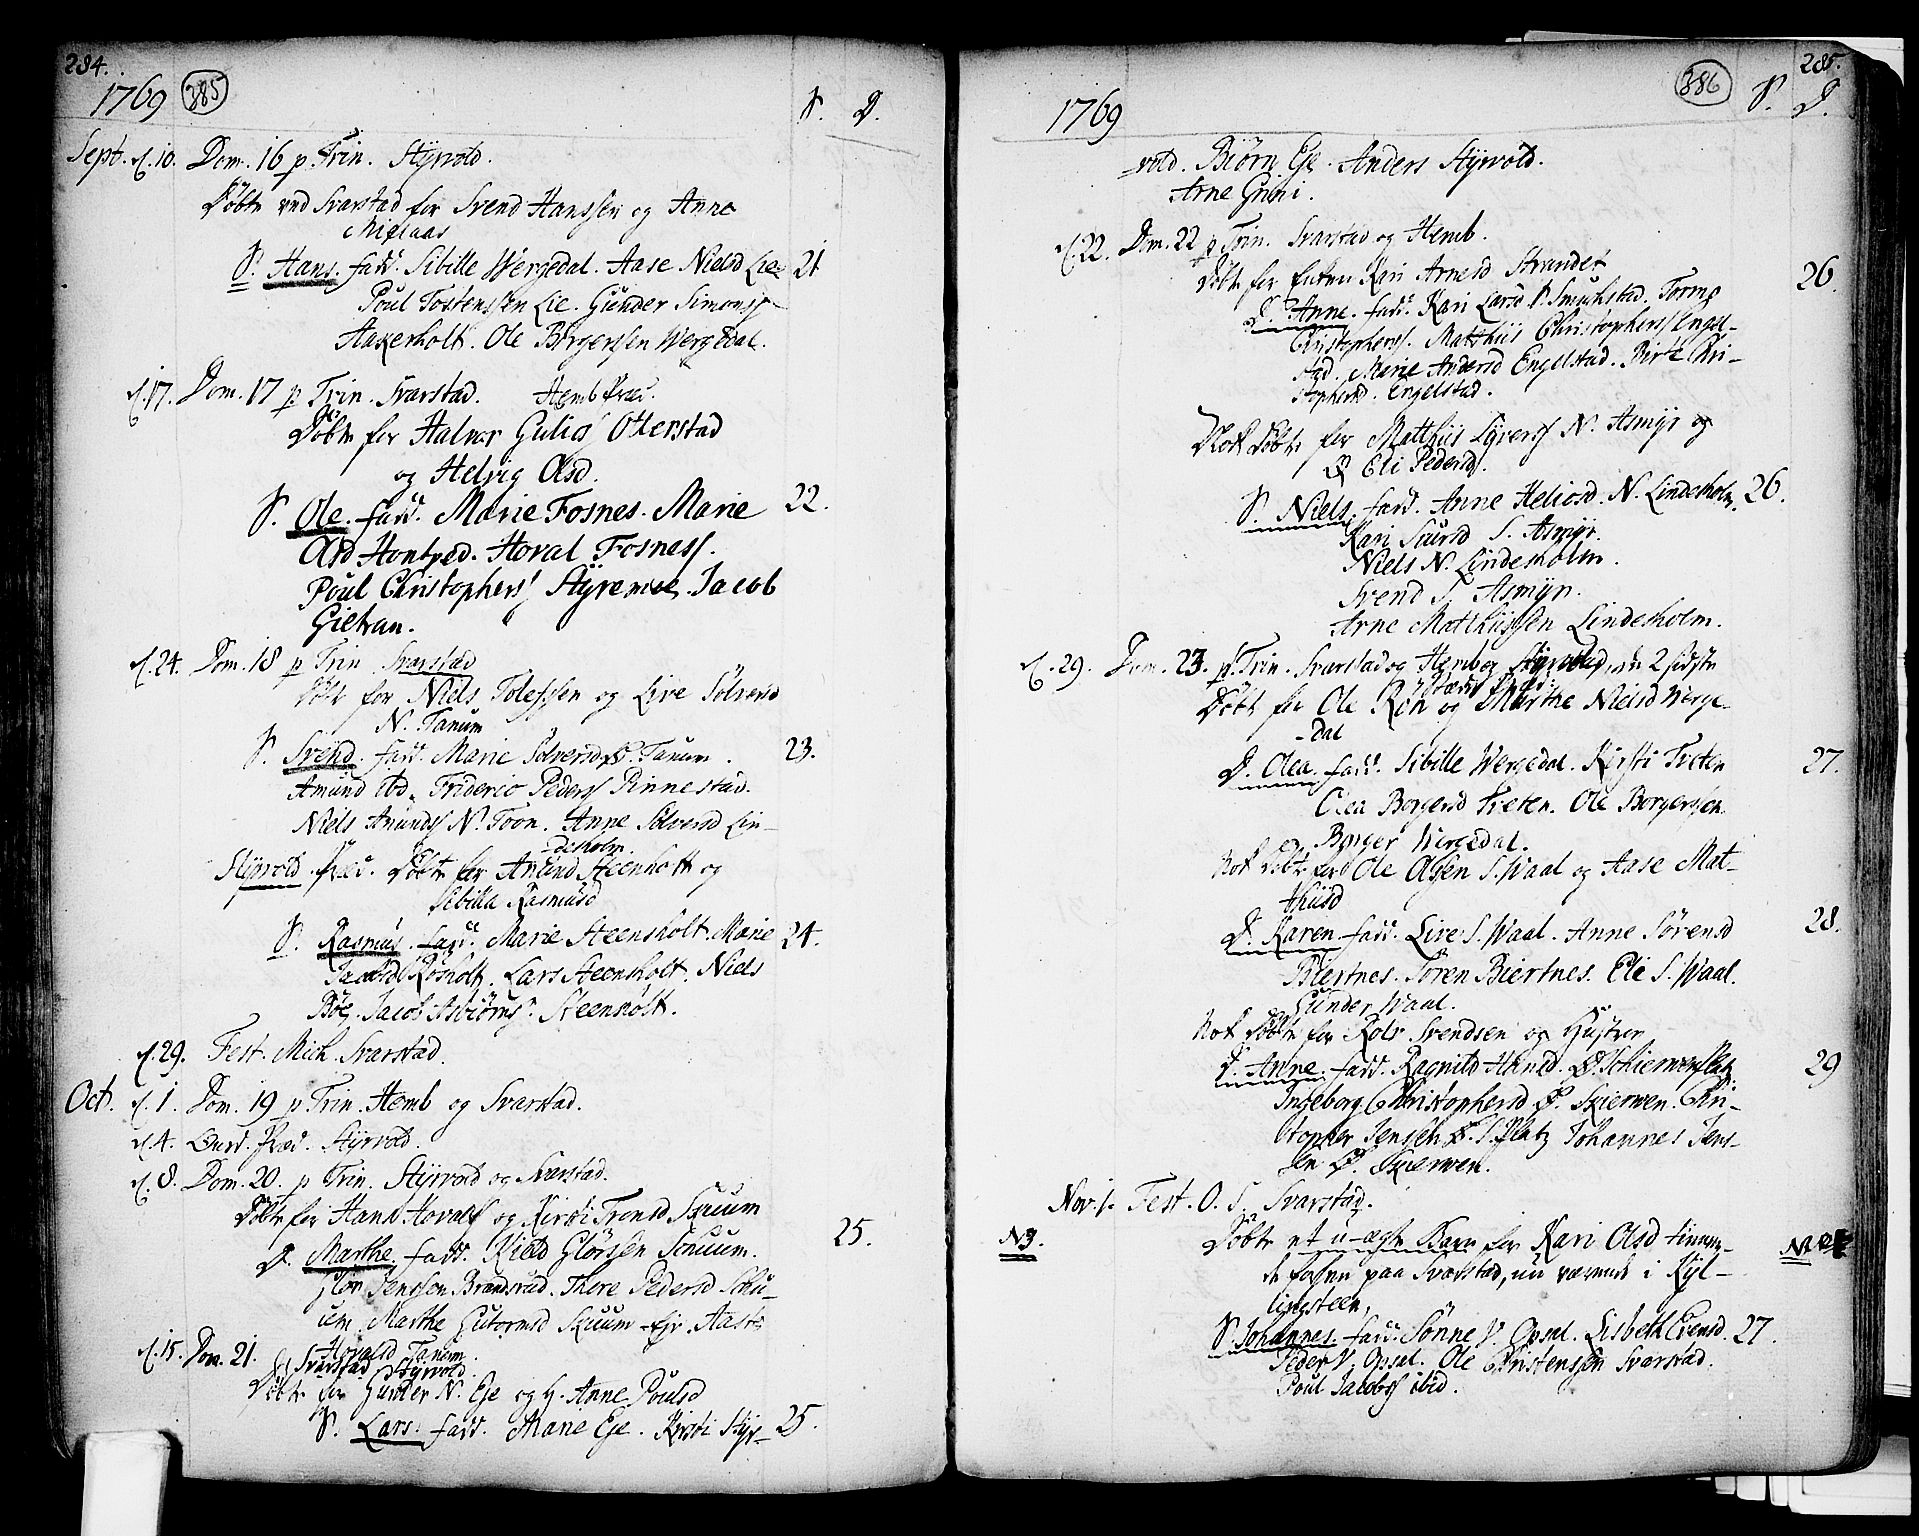 284.
1769 385
S. D.
Sept. d. 10. Dom. 16 p. Trin. Styrvold.
Döbt ved Svarstad for Svend Hanssen og Anne
Niclaas
S. Hans. fadd. Sibille Wergedal. Aase Nielsd Lie 21
Poul Tostenssen Lie. Gunder Simonss
Aakerholt. Ole Borgerssen Wergedal.
d. 17. Dom. 17 p Trin. Svarstad. Hemb Præd.
Döbt for Halvor Gulics Otterstad
og Helvig Olsd.
S. Ole. fadd. Marie Fosnes. Marie 22.
Olsd Hontved. Hoval Fosness.
Poul Christopherss Styremoe. Jacob
Gietran.
d. 24. Dom. 18 p Trin Svarstad
Döbt for Niels Tolefssen og Live Sölversd
N. Tanum
S. Svend. fadd. Marie Sölversd S. Tanum. 23.
Amund ibd. Frideric Pederss Rinnestad.
Niels Amundss N. Toon. Anne Sölversd Lin-
deholm.
Styrvold Præd. Döbt for Amund Steenholt og
Sibilla Rasmusd
S. Rasmus. fadd. Marie Steensholt. Marie 24.
Jacobsd Rosholt. Lars Steensholt. Niels
Böe. Jacob Asbiörnss Steensholt.
d. 29. Fest. Mich. Svarstad.
Oct. d. 1. Dom. 19 p Trin. Hemb og Svarstad.
d. 4. Onsd. Præd. Styrvold.
d. 8. Dom. 20. p Trin. Styrvold og Svarstad.
Döbt for Hans Hovalss og Kirsti Trondsd Skuum
D. Marthe. fadd. Kield Glörsen Schuum. 25.
Glör Jenssen Brandsrud. Thore Pedersd Schu-
um. Marthe Gutormsd Skuum Aaste
Hovalsd Tanum.
d. 15. Dom. 21. Svarstad Styrvold
Döbt for Gunder N. Eje og H. Anne Poulsd
S. Lars. fadd. Marie Eje. Kirsti Styr- 25.
285.
1769 386
S. D.
vold. Biörn Eje. Anders Styrvold.
Arne Grini.
d. 22. Dom. 22 p Trin. Svarstad og Hemb.
Döbt for Enken Kari Arnesd Strandet
D. Anne. fadd. Kari Larsd S. Smukstad. Torme 26.
Christopherss. Matthis Christopherss Engel-
stad. Marie Andersd Engelstad. Birte Chri-
stophersd. Engelstad.
Nok Döbt for Matthis Syverss N. Asmyr og
Eli Pedersd.
S. Niels. fadd. Anne Heliosd. N. Lindesholm. 26.
Kari Siursd S. Asmyr.
Niels N. Lindesholm.
Svend S. Asmyr.
Arne Matthissen Lindesholm.
d. 29. Dom. 23. p. Trin. Svarstad og Hemb og Styrvold, de 2 sidste
Stæder Præd.
Döbt for Ole Röh og Marthe Nielsd Werge-
dal
D. Olea. fadd. Sibille Wergedal. Kirsti Treten 27.
Olea Borgersd Treten. Ole Borgerssen.
Borger Wergedal.
Nok Döbt for Ole Olssen S. Waal og Aase Mat-
thisd
D. Karen fadd. Live S. Waal. Anne Sörensd 28.
Biertnes. Sören Biertnes. Eli S. Waal.
Gunder Waal.
Nok Döbt for Rolv Svendsen og Hustrue
D. Anne. fadd. Ragnild Hansd. S. Schierven Platz 29
Ingeborg Christophersd S. Skierven. Chri-
stopher Jensen S. S. Platz Johannes Jens-
sen S. Skierven.
Nov. 1. Fest. O. S. Svarstad.
N3. Döbt et u-ægte Barn for Kari Olsd tienen-
de for paa Svarstad, nu værende i Kyl-
lingsteen,
S. Johannes. fadd. Sönne V. Opsal. Lisbeth Evensd. 27.
Peder V. Opsal. Ole Christensen Svarstad.
Poul Jacobss ibid.